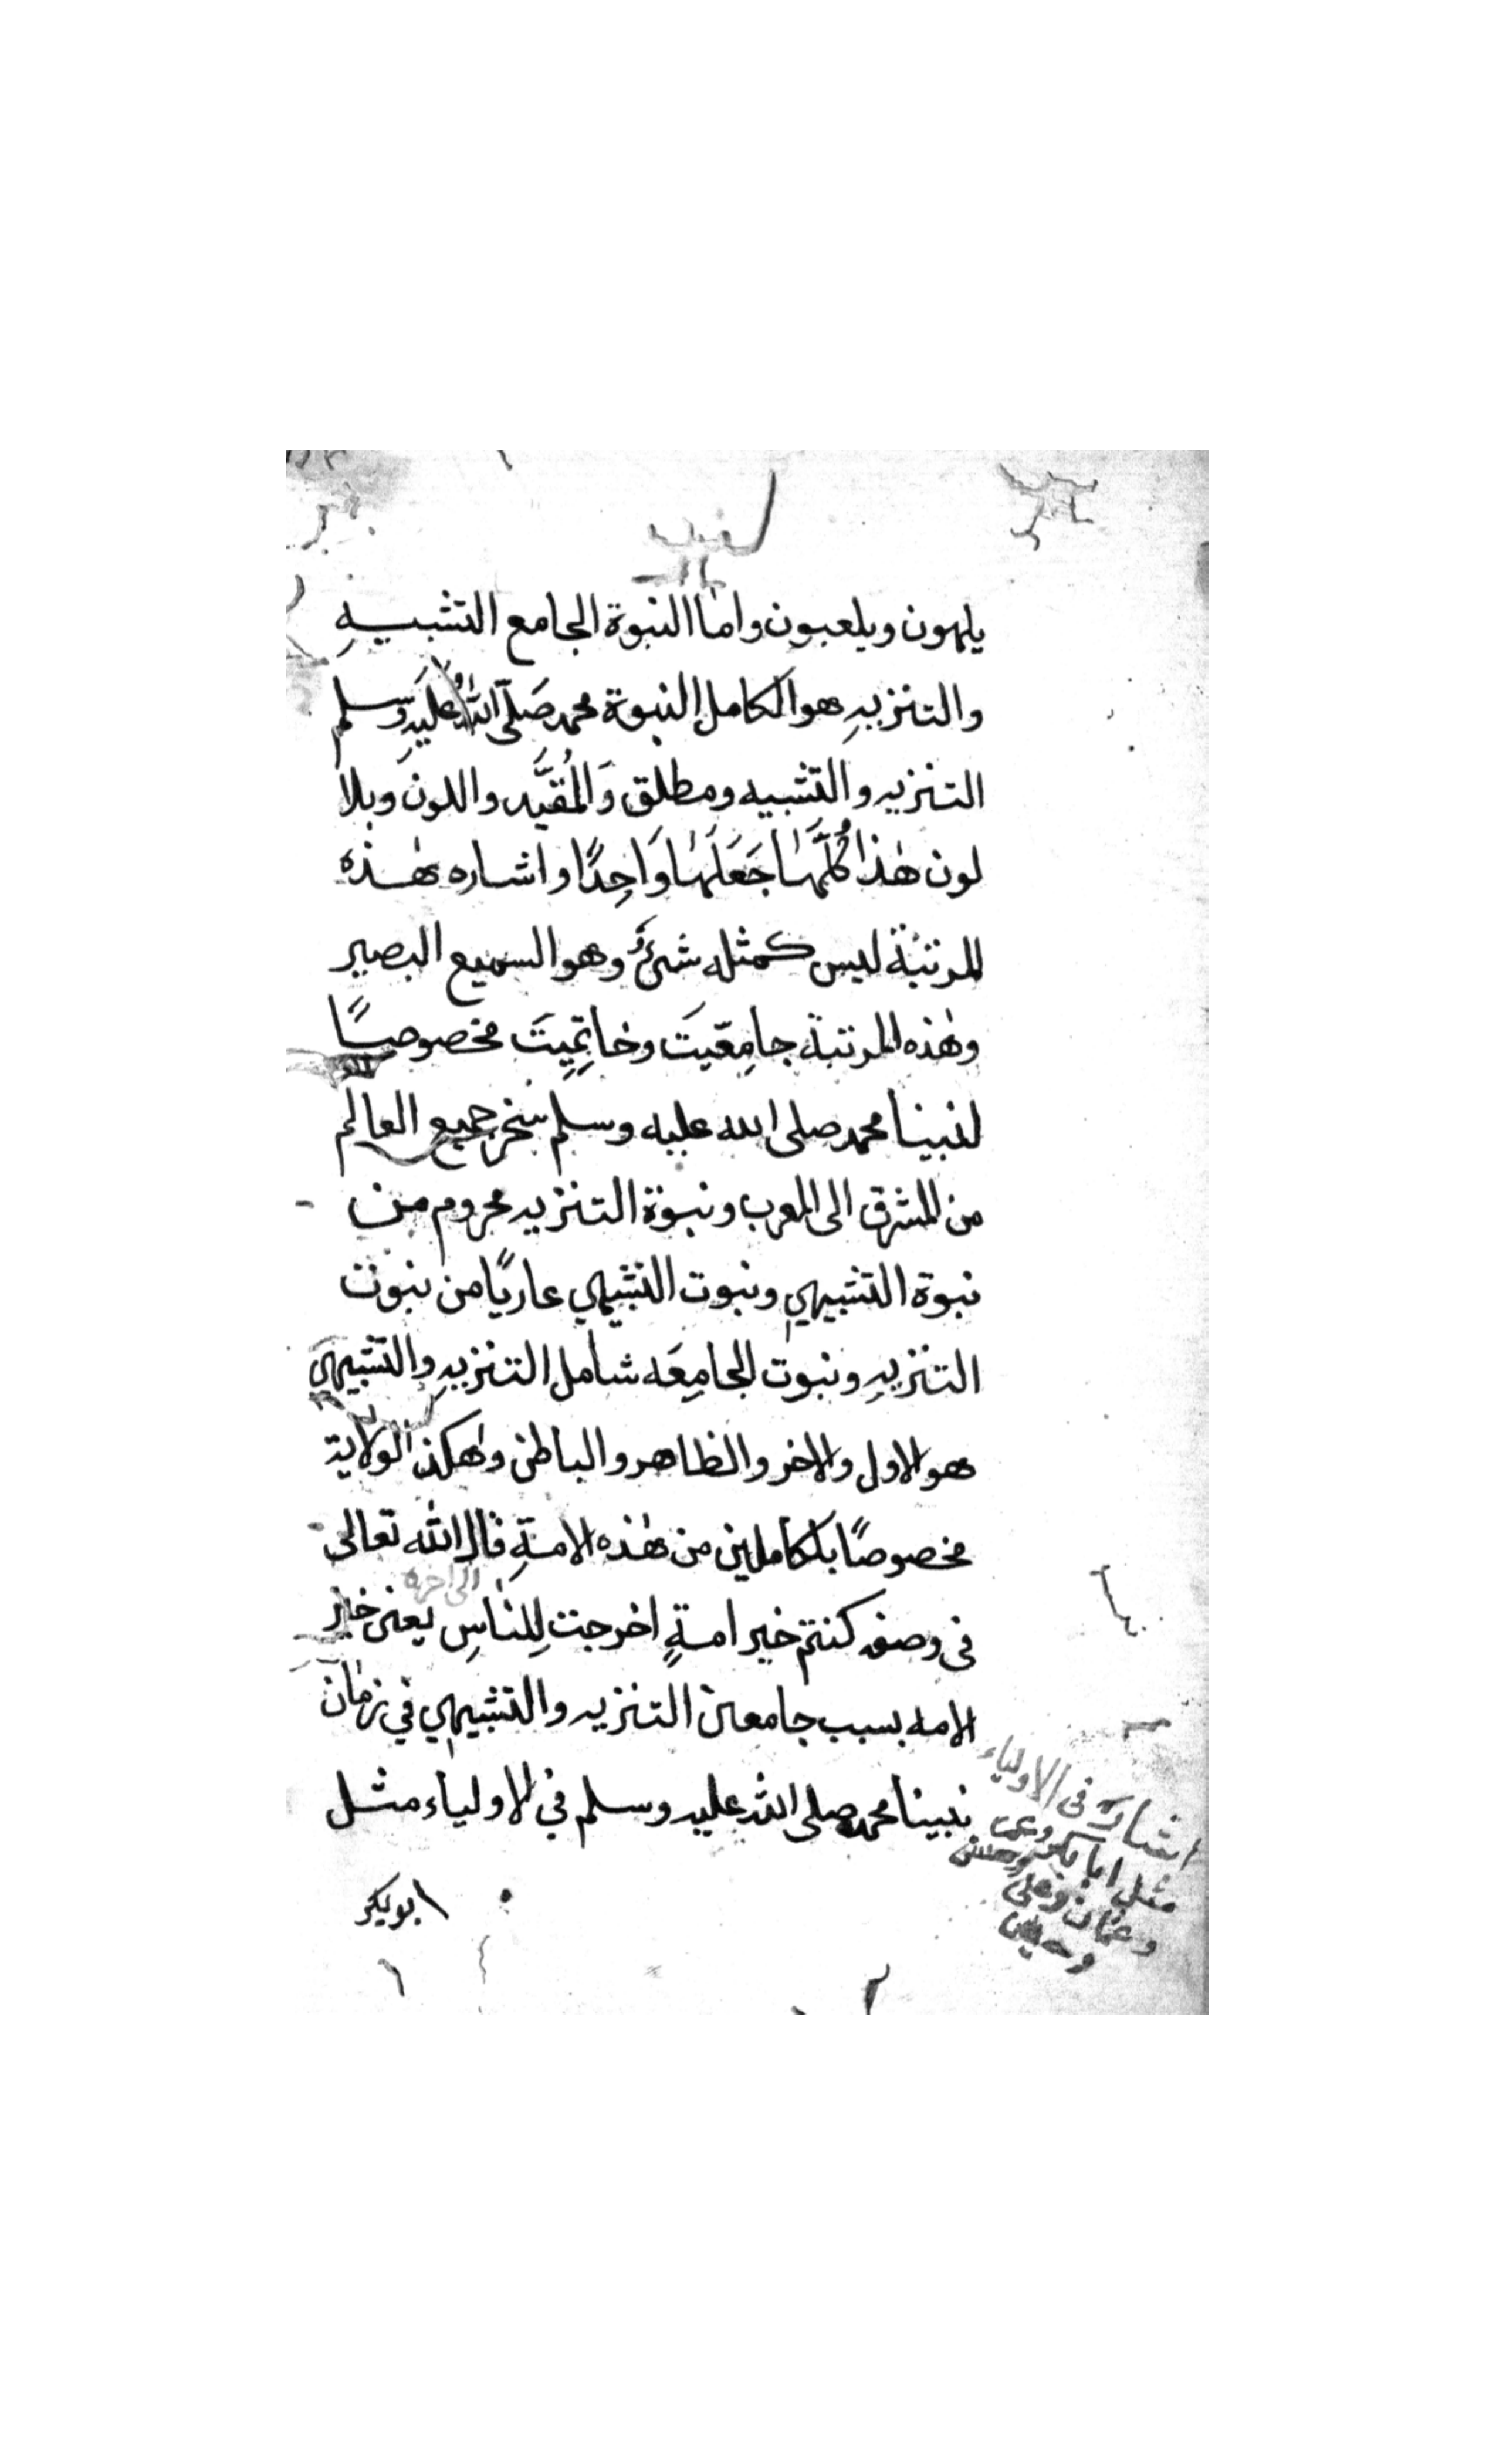 يلهون ويلعبون واما النبوة الجامع التشبيهِ
والتنزيهِ هو الكامل النبوة محمد صَلَّى اللّٰهُ عَلَيْهِ وَسلم
التنزيه والتشبيه ومطلق وَالمُقَيَّد واللون وبلا
لون هٰذا كُلَّهٰا جَعَلَهٰا وَاحِدًا واشاره بهٰذه
المرتبة ليس كمثله شىءٌ وهو السميع البصير
وهٰذه المرتبة جامِعّيتَ وخاتِمِيتَ مخصوصًا
لنبينا محمد صلى الله عليه وسلم سخر جميع العالم
من المشرق الى المغرب ونبوة التنزيه محروم من
نبوة التشبيهي ونبوت التشبيهي عاريًا من نبوت
التنزيهِ ونبوت الجامِعَه شامل التنزيهِ والتشبيهي
هو الاول والاخر والظاهر والباطن وهٰكذا الولاية
مخصوصًا بلكاملين من هٰذه الامةِ قال اللّٰه تعالى
الى اخره
فى وصفه كنتم خير امةٍ اخرجت لِلنٰاسِ يعنى خير
الامه بسبب جامعين التنزيه والتشبيهي في زمٰان
نبينا محمد صلى اللّٰه عليه وسلم في الاولياء مثل
اشارة فى الاولياء
مثل ابا بكر وعمر
وعثمان وعلى وحسن
وحسين
ابوبكر